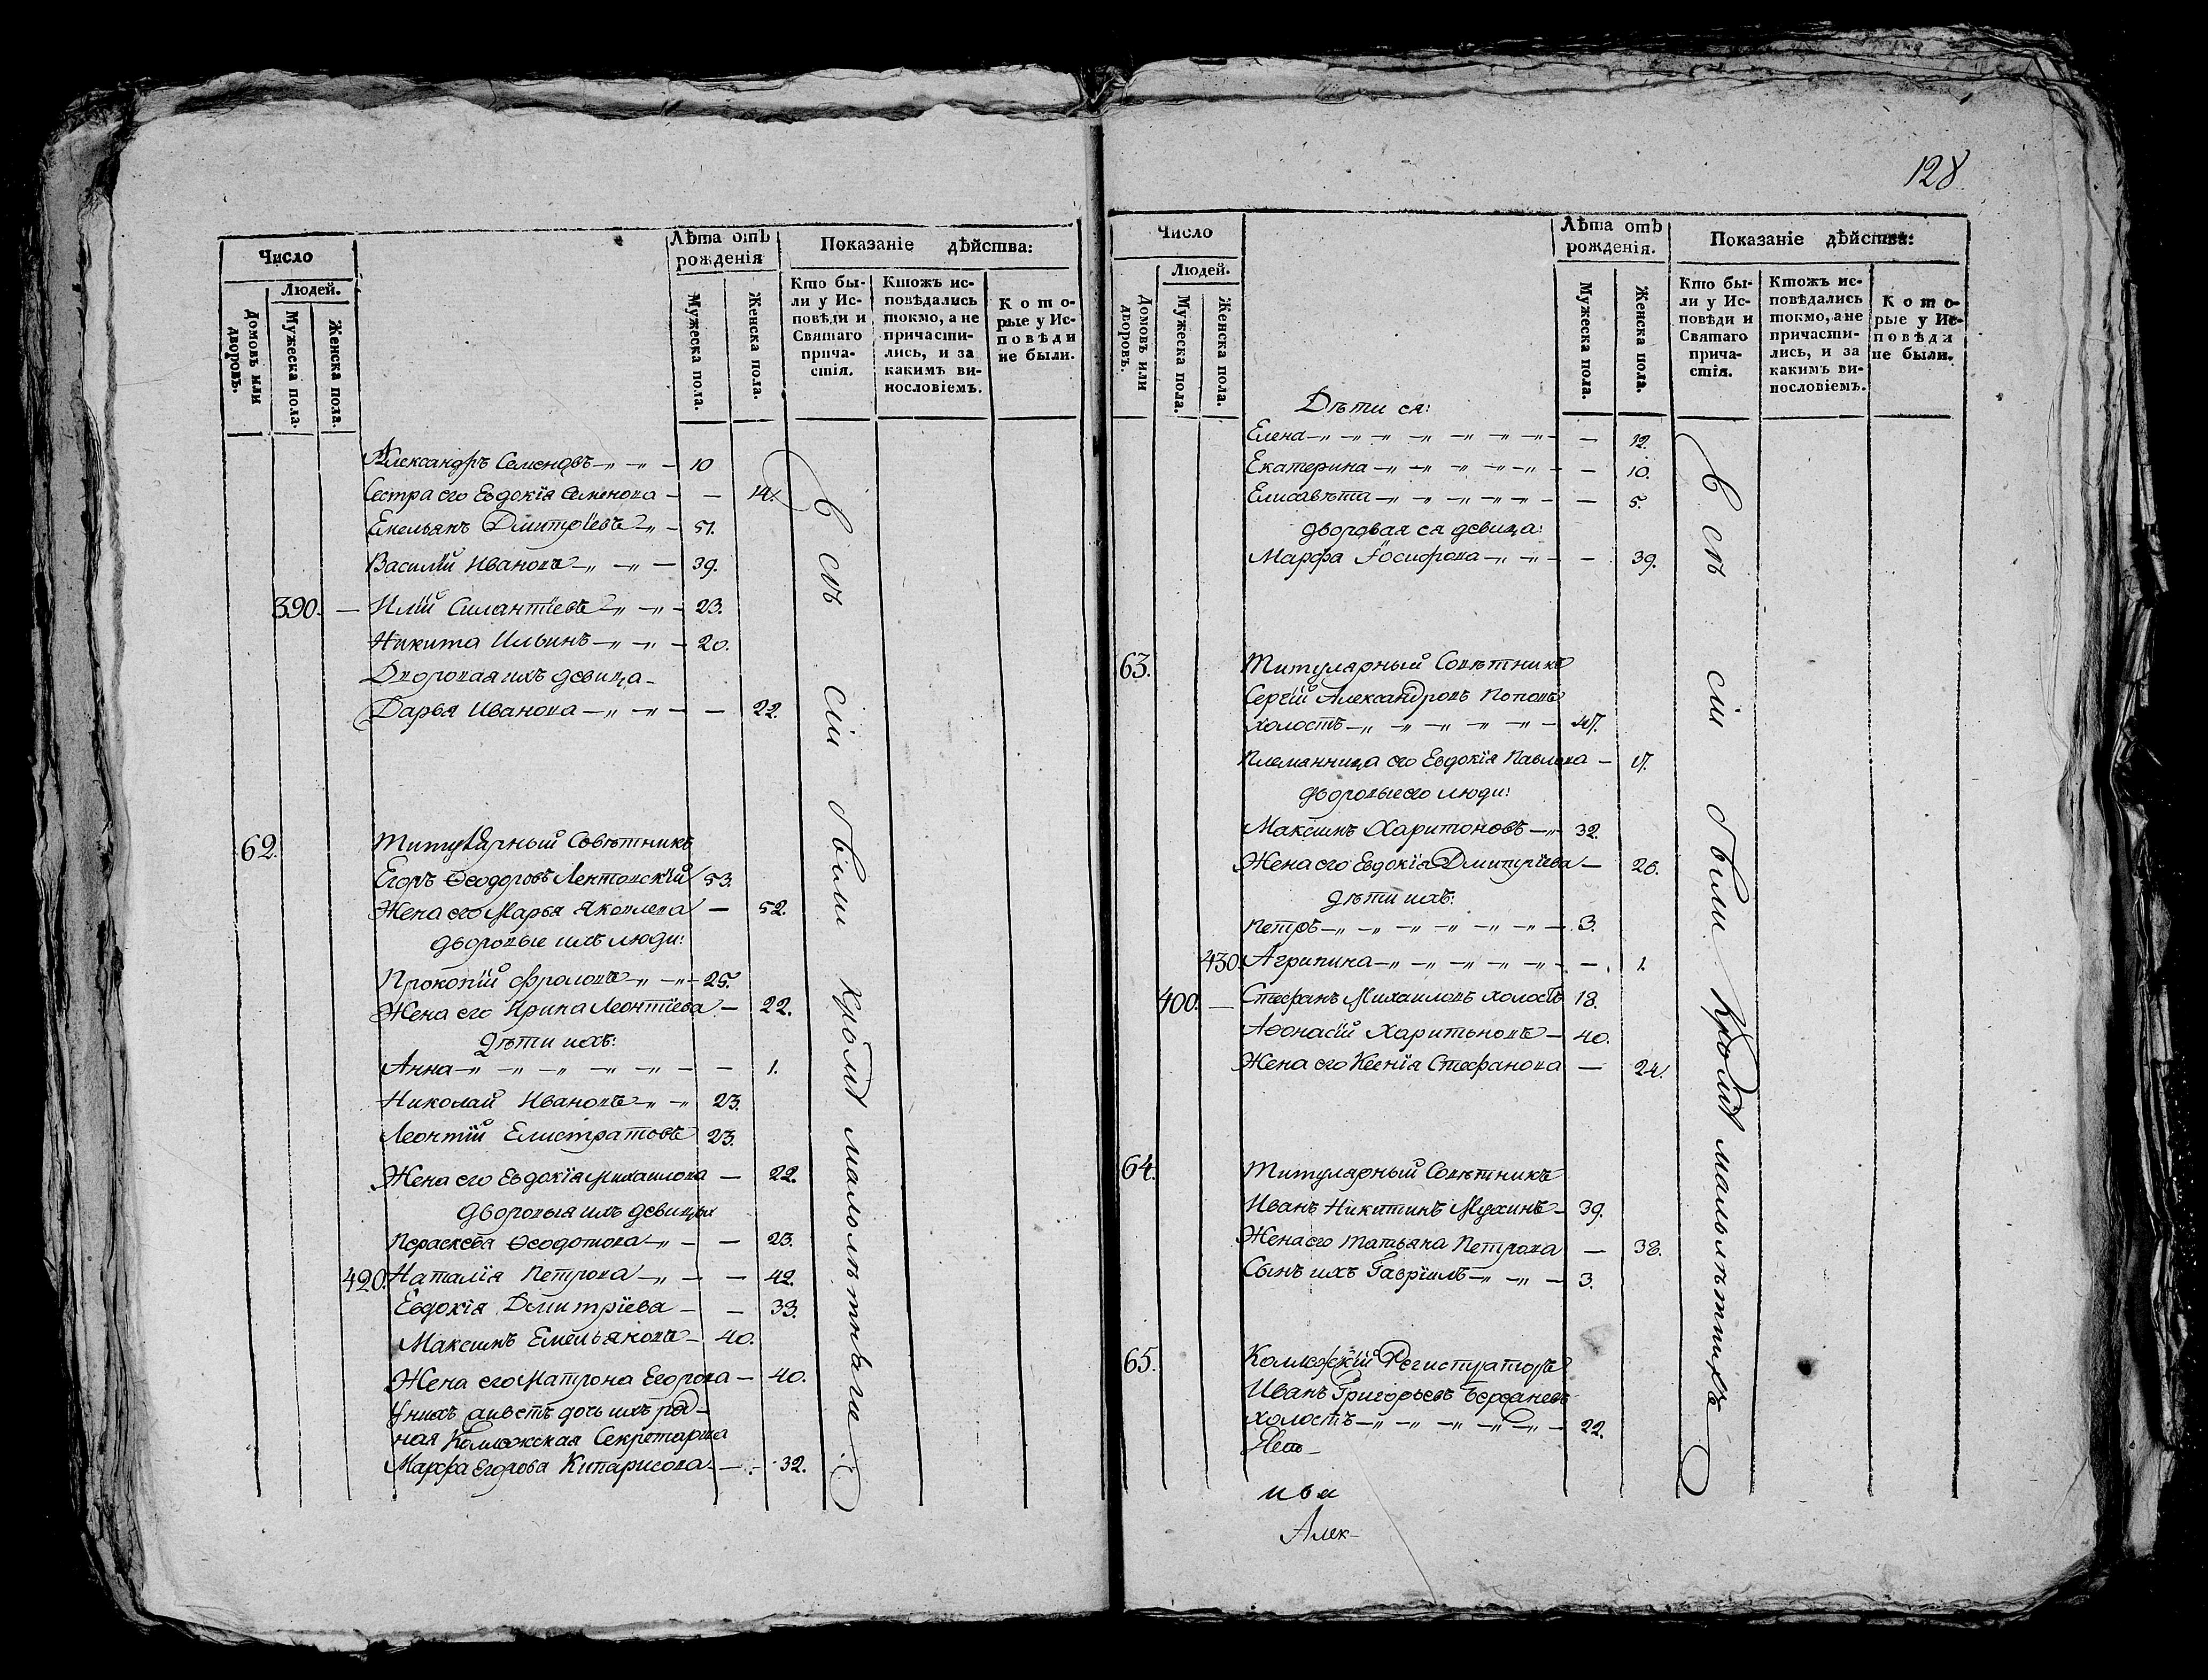 Число
Лѣта отъ рожденія
Показаніе дѣйства:
Людей.
Домовъ или дворовъ.
Мужеска пола.
Женска пола.
Мужеска пола.
Женска пола.
Кто были у Исповѣди и Святаго причастія.
Ктожъ исповѣдались токмо, а не причастились, и за какимъ винословіемъ.
Которые у Исповѣди не были.
Александръ Семеновъ 10
Сестра его Евдокія Семенова — 14.
Емельянъ Дмитріевъ 51.
Василій Ивановъ 39.
390. — Илій Силантіевъ 23.
Никита Ильинъ 20.
Дворовая ихъ девица
Дарья Иванова — 22.
62. Титулярный Совѣтникъ
Егоръ Ѳеодоровъ Лентовскій 53.
Жена его Марья Яковлева — 52.
дворовые ихъ люди:
Прокопій Фроловъ 25.
Жена его Ирина Леонтіева — 22.
Дѣти ихъ:
Анна — 1.
Николай Ивановъ 23.
Леонтій Елистратовъ 23.
Жена его Евдокія Михаилова — 22.
дворовыя ихъ девицы
Пераскева Ѳеодотова — 23.
420. Наталія Петрова — 42.
Евдокія Дмитріева — 33.
Максимъ Емельяновъ 40.
Жена его Матрона Егорова — 40.
У нихъ живетъ дочь ихъ род-
ная Коллежская Секретарша
Марфа Егорова Кипарисова — 32.
Всѣ сіи были кромѣ малолѣтнаго
128
Число
Лѣта отъ рожденія.
Показаніе дѣйства:
Людей.
Домовъ или дворовъ.
Мужеска пола.
Женска пола.
Мужеска пола.
Женска пола.
Кто были у Исповѣди и Святаго причастія.
Ктожъ исповѣдались токмо, а не причастились, и за какимъ винословіемъ.
Которые у Исповѣди не были.
Дѣти ея:
Елена — 12.
Екатерина — 10.
Елисавѣта — 5.
дворовая ея девица:
Марфа Іосифова — 39.
63. Титулярный Совѣтникъ
Сергій Александровъ Поповъ
холостъ 47.
Племянница его Евдокія Павлова — 17.
дворовые его люди:
Максимъ Харитоновъ 32.
Жена его Евдокія Дмитріева — 26.
дѣти ихъ:
Петръ 3.
430. Агрипина — 1.
400. — Стефанъ Михаиловъ холостъ 18.
Аѳонасій Харитоновъ 40.
Жена его Ксенія Стефанова — 24.
64. Титулярный Совѣтникъ
Иванъ Никитинъ Мухинъ 39.
Жена его Татьяна Петрова — 38.
Сынъ ихъ Гавріилъ 3.
65. Коллежскій Регистраторъ
Иванъ Григорьевъ
холостъ 22.
Алек-
Всѣ сіи были кромѣ малолѣтныхъ